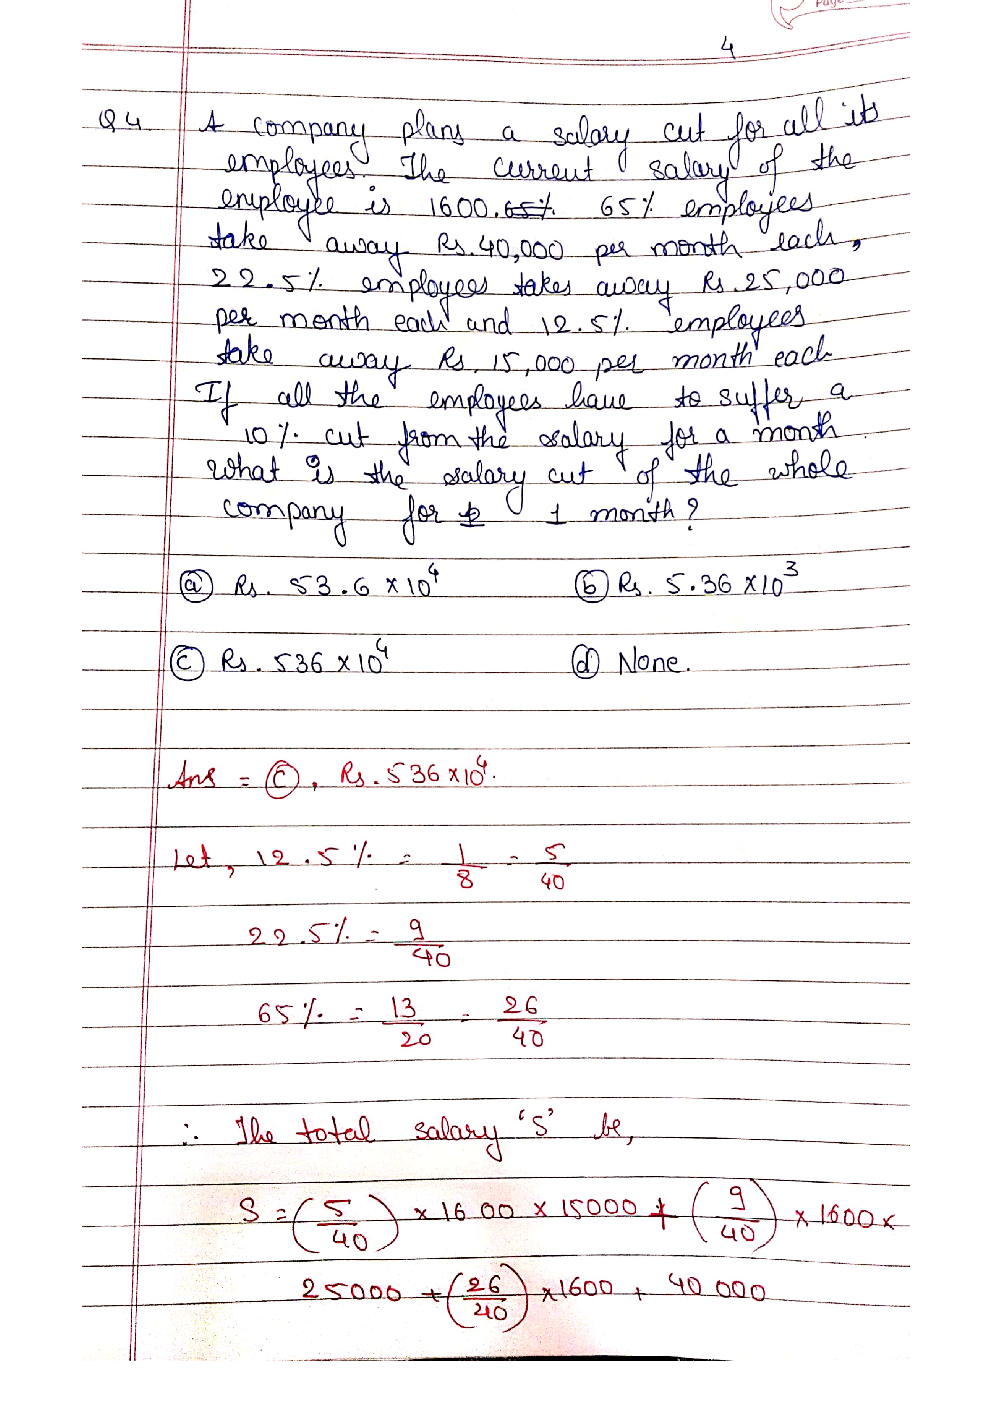 Page
4
Q4 A company plans a salary cut for all its
employees. The current salary of the
employee is 1600. 65% 65% employees
take away Rs. 40,000 per month each,
22.5% employees takes away Rs. 25,000
per month each and 12.5% employees
take away Rs. 15,000 per month each
If all the employees have to suffer a
10% cut from the salary for a month
what is the salary cut of the whole
company for 1 month?
(a) Rs. 53.6 x 10⁴ (b) Rs. 5.36 x 10³
(c) Rs. 536 x 10⁴ (d) None.
Ans = (c), Rs. 536 x 10⁴.
Let, 12.5% = 1/8 = 5/40
22.5% = 9/40
65% = 13/20 = 26/40
∴ The total salary 'S' be,
S = (5/40) x 1600 x 15000 + (9/40) x 1600 x
25000 + (26/40) x 1600 + 40 000